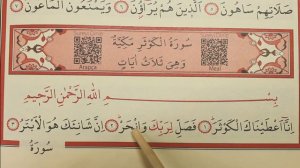 صَلَاتِهِمْ سَاهُونَ ۝٥ اَلَّذٖينَ هُمْ يُرَٓاؤُ۫نَ ۝٦ وَيَمْنَعُونَ الْمَاعُونَ ۝٧
سُورَةُ الْكَوْثَرِ مَكِّيَّةٌ
وَهِيَ ثَلَاثُ اٰيَاتٍ
Arapça
Meal
بِسْمِ اللّٰهِ الرَّحْمٰنِ الرَّحٖيمِ
اِنَّٓا اَعْطَيْنَاكَ الْكَوْثَرَ ۝١ فَصَلِّ لِرَبِّكَ وَانْحَرْ ۝٢ اِنَّ شَانِئَكَ هُوَ الْاَبْتَرُ ۝٣
سُورَةُ